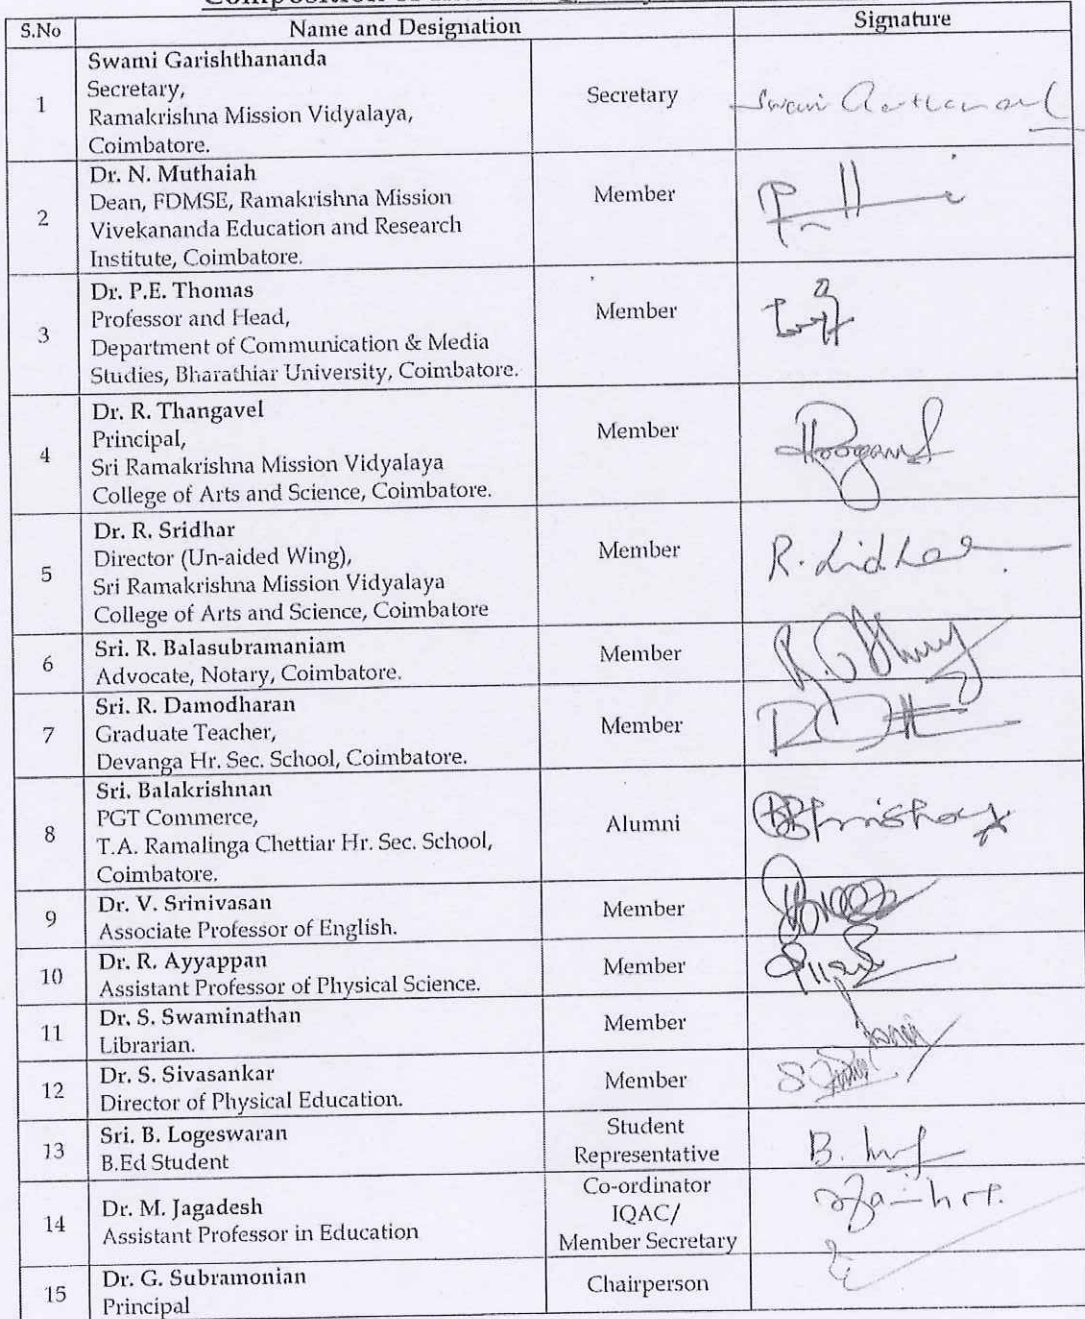 S.No Name and Designation Signature
1 Swami Garishthananda
Secretary,
Ramakrishna Mission Vidyalaya,
Coimbatore.
Secretary
Swami
2 Dr. N. Muthaiah
Dean, FDMSE, Ramakrishna Mission
Vivekananda Education and Research
Institute, Coimbatore.
Member
3 Dr. P.E. Thomas
Professor and Head,
Department of Communication & Media
Studies, Bharathiar University, Coimbatore.
Member
4 Dr. R. Thangavel
Principal,
Sri Ramakrishna Mission Vidyalaya
College of Arts and Science, Coimbatore.
Member
5 Dr. R. Sridhar
Director (Un-aided Wing),
Sri Ramakrishna Mission Vidyalaya
College of Arts and Science, Coimbatore
Member
6 Sri. R. Balasubramaniam
Advocate, Notary, Coimbatore.
Member
7 Sri. R. Damodharan
Graduate Teacher,
Devanga Hr. Sec. School, Coimbatore.
Member
8 Sri. Balakrishnan
PGT Commerce,
T.A. Ramalinga Chettiar Hr. Sec. School,
Coimbatore.
Alumni
9 Dr. V. Srinivasan
Associate Professor of English.
Member
10 Dr. R. Ayyappan
Assistant Professor of Physical Science.
Member
11 Dr. S. Swaminathan
Librarian.
Member
12 Dr. S. Sivasankar
Director of Physical Education.
Member
13 Sri. B. Logeswaran
B.Ed Student
Student
Representative
14 Dr. M. Jagadesh
Assistant Professor in Education
Co-ordinator
IQAC/
Member Secretary
15 Dr. G. Subramonian
Principal
Chairperson